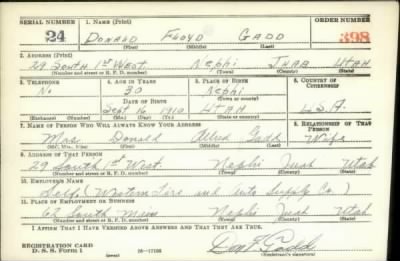 SERIAL NUMBER 1. NAME (Print) ORDER NUMBER
24 DONALD FLOYD GADD 398
(First) (Middle) (Last)
2. ADDRESS (Print)
29 SOUTH 1st WEST. NEPHI JUAB UTAH
(Number and street or R. F. D. number) (Town) (County) (State)
3. TELEPHONE 4. AGE IN YEARS 5. PLACE OF BIRTH 6. COUNTRY OF CITIZENSHIP
No 30 Nephi
DATE OF BIRTH (Town or county)
Sept 16, 1910 UTAH U.S.A.
(Mo.) (Day) (Yr.) (State or country)
7. NAME OF PERSON WHO WILL ALWAYS KNOW YOUR ADDRESS 8. RELATIONSHIP OF THAT PERSON
Mrs Donald Gadd Wife
(Mr., Mrs., Miss) (First) (Middle) (Last)
9. ADDRESS OF THAT PERSON
29 South 1st West. Nephi Juab Utah
(Number and street or R. F. D. number) (Town) (County) (State)
10. EMPLOYER'S NAME
Self (Western Tire and Auto Supply Co.)
11. PLACE OF EMPLOYMENT OR BUSINESS
62 South Main Nephi Juab Utah
(Number and street or R. F. D. number) (Town) (County) (State)
I AFFIRM THAT I HAVE VERIFIED ABOVE ANSWERS AND THAT THEY ARE TRUE.
REGISTRATION CARD
D. S. S. Form 1 16—17105 Don F. Gadd
(over) (Registrant's signature)